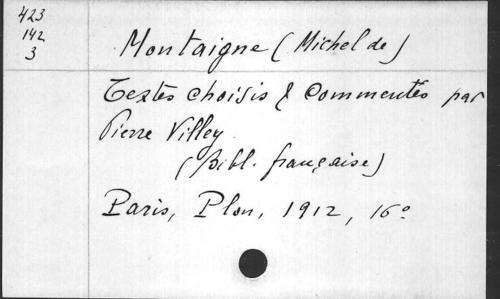 423
142
3
Montaigne (Michel de)
Textes choisis & Commentés par
Pierre Villey
(Bibl. française)
Paris, Plon, 1912, 16º